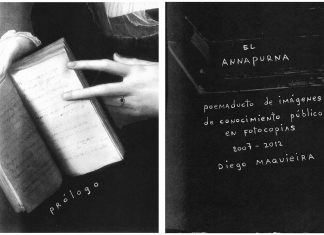 prólogo
EL
ANNAPURNA
poemaducto de imágenes
de conocimiento público
en fotocopias
2007 - 2012
Diego Maquieira